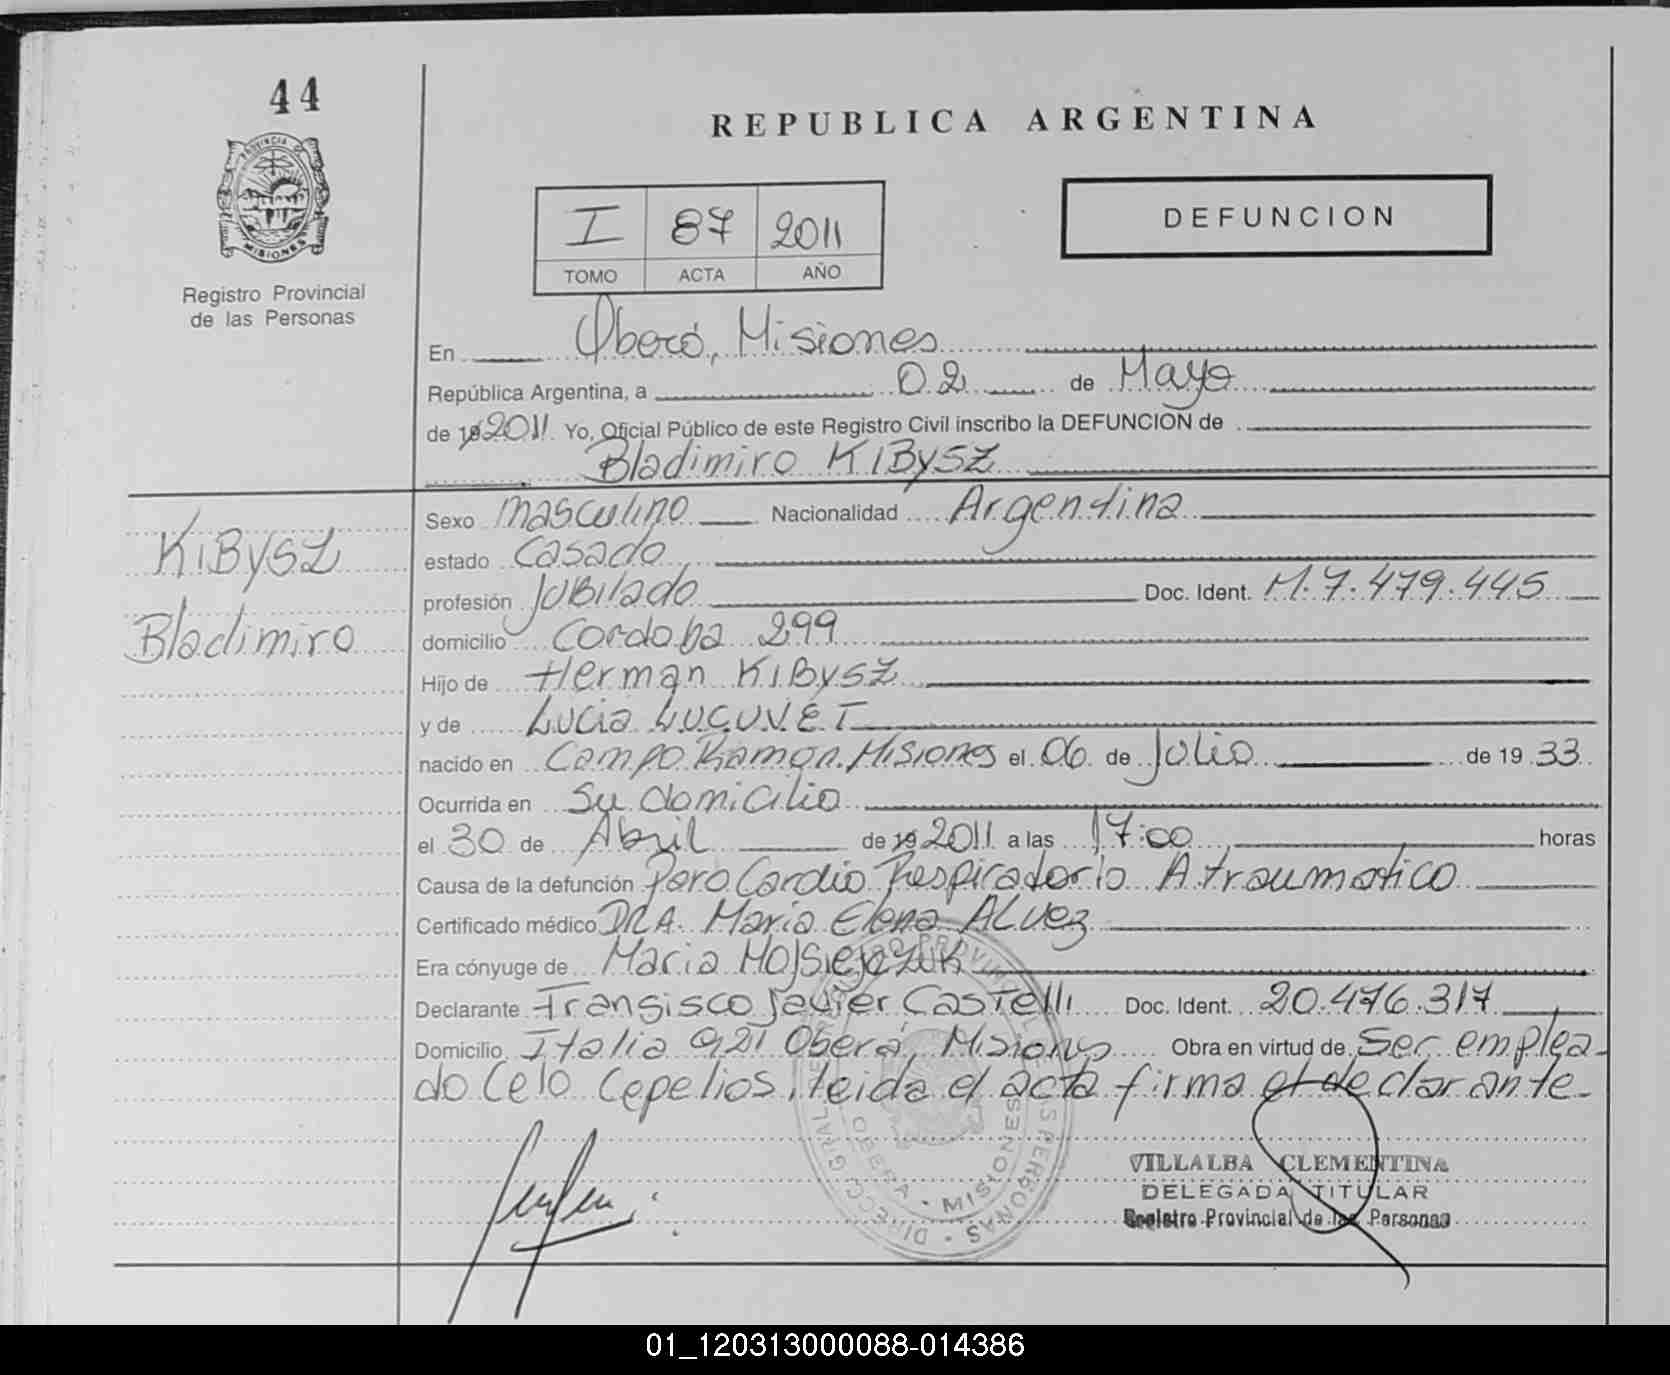 44
PROVINCIA DE
MISIONES
Registro Provincial
de las Personas
REPUBLICA ARGENTINA
I 87 2011
TOMO ACTA AÑO
DEFUNCION
En Oberá, Misiones
República Argentina, a 02 de Mayo
de 19 2011. Yo, Oficial Público de este Registro Civil inscribo la DEFUNCION de
Bladimiro KIBYSZ
KIBYSZ
Bladimiro
Sexo Masculino Nacionalidad Argentina
estado Casado
profesión Jubilado Doc. Ident. M.7.479.445
domicilio Cordoba 299
Hijo de Herman KIBYSZ
y de Lucia LUCUVET
nacido en Campo Ramon. Misiones el 06 de Julio de 19 33
Ocurrida en Su domicilio
el 30 de Abril de 19 2011 a las 17:00 horas
Causa de la defunción Paro Cardio Respiratorio Atraumatico
Certificado médico DRA. Maria Elena ALVez
Era cónyuge de Maria MOJSIEJCZUK
Declarante Fransisco Javier Castelli Doc. Ident. 20.476.317
Domicilio Italia 921 Oberá, Misiones Obra en virtud de Ser emplea-
do Celo Cepelios, leida el acta firma el declarante-
VILLALBA CLEMENTINA
DELEGADA TITULAR
Registro Provincial de las Personas
OBERA - MISIONES
01_120313000088-014386